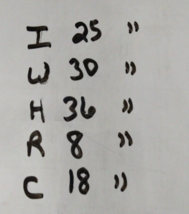 I 25 "
W 30 "
H 36 "
R 8 "
C 18 "